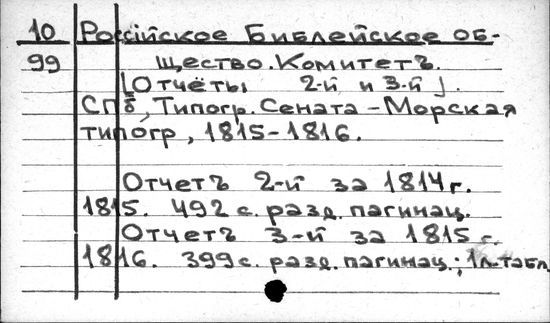 10 Россiйское Библейское об-
99 щество. Комитетъ.
[Отчёты 2-й и 3-й].
СПб, Типогр. Сената - Морская
типогр, 1815-1816.
Отчетъ 2-й за 1814 г.
1815. 492 с. разд. пагинац.
Отчетъ 3-й за 1815 г.
1816. 399 с. разд. пагинац.; 1 л. табл